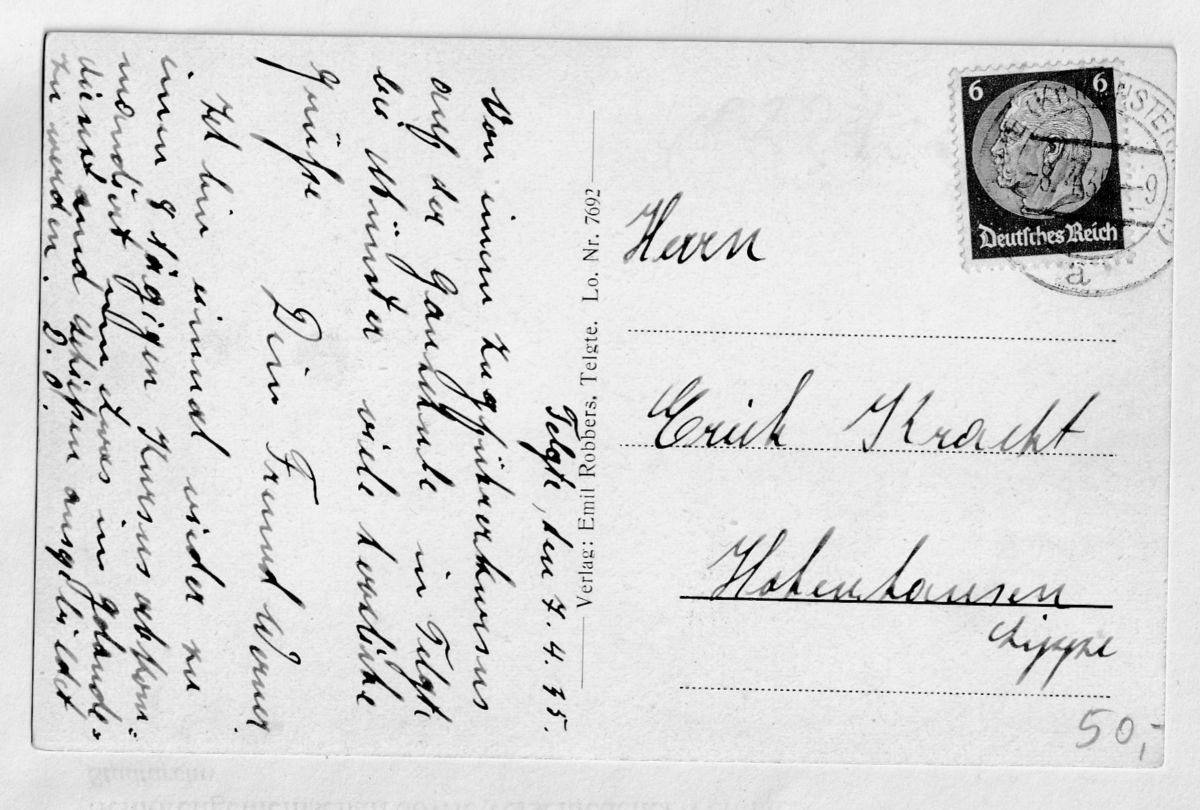 Telgte, den 7. 4. 35.
Von einem Zugführerkursus
auf der Gauschule in Telgte
bei Münster viele herzliche
Grüße
Dein Freund Werner.
Ich bin einmal wieder zu
einem 8 tägigen Kursus abkom-
mandiert um etwas im Gelände-
dienst und Schießen ausgebildet
zu werden. D. O.
Verlag: Emil Robbers, Telgte. Lo. Nr. 7692
6 6
Deutsches Reich
MÜNSTER
-8. 4. 35 -9
a
Herrn
Erich Kracht
Hohenhausen
Lippe
50,-